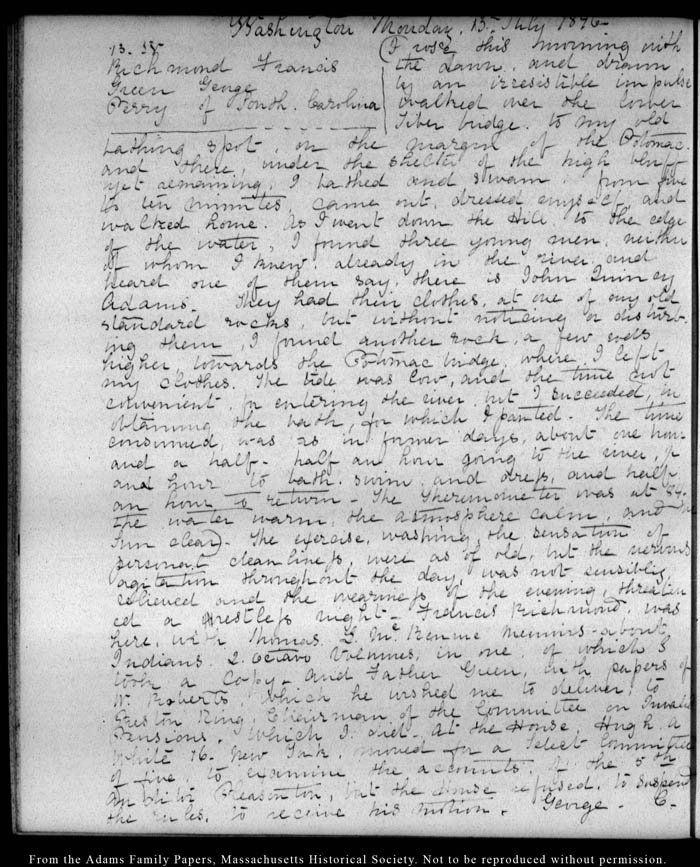 Washington Monday. 13. July 1846.
13. IV.
Richmond Francis
Green George
Perry of South. Carolina
I rose this morning with
the dawn, and drawn
by an irresistible impulse
walked over the lower
Tiber bridge. to my old
bathing spot, on the margin of the Potomac.
and there, under the shelter of the high bluff
yet remaining, I bathed and swam from five
to ten minutes came out, dressed myself, and
walked home. As I went down the Hill to the edge
of the water, I found three young men, neither
of whom I knew, already in the river and
heard one of them say, there is John Quincy
Adams. They had their clothes, at one of my old
standard rocks, but without noticing or disturb-
ing them, I found another rock, a few rods
higher towards the Potomac bridge, where I left
my clothes. The tide was low, and the time not
convenient, for entering the river, but I succeeded, in
obtaining the bath, for which I panted. The time
consumed was as in former days, about one hour
and a half. half an hour going to the river,
and hour to bath. swim and dress, and half
an hour to return - The Thermometer was at 84.
the water warm, the atmosphere calm, and
sun clear. The exercise, washing, the sensation of
personal cleanliness, were as of old, but the nervous
agitation throughout the day, was not sensibly
relieved and the weariness of the evening threaten
ed a restless night - Francis Richmond, was
here, with Thomas L. Mc.Kennie memoirs - about
Indians. 2. octavo Volumes, in one, of which I
took a copy - and Father Green, with papers of
W. Roberts, which he wished me to deliver, to
Preston King, Chairman of the Committee on Invalid
Pensions, which I did. At the House, Hugh, A
White 16. New York, moved for a Select Committee
of five, to examine the accounts, of the 5th
Auditor Pleasonton, but the House refused, to suspend
the rules, to receive his motion. George - C-
From the Adams Family Papers, Massachusetts Historical Society. Not to be reproduced without permission.